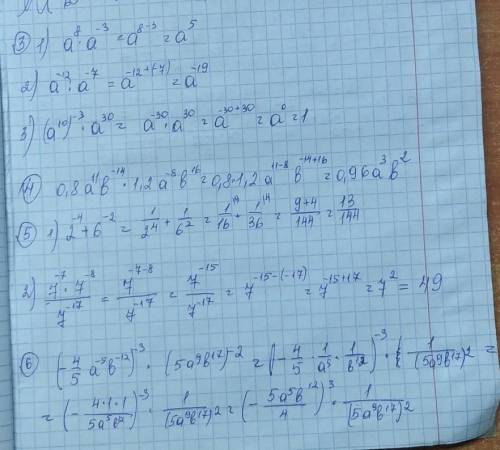 ③ 1) a⁸ · a⁻³ = a⁸⁻³ = a⁵
2) a⁻¹² · a⁻⁷ = a⁻¹²⁺⁽⁻⁷⁾ = a⁻¹⁹
3) (a¹⁰)⁻³ · a³⁰ = a⁻³⁰ · a³⁰ = a⁻³⁰⁺³⁰ = a⁰ = 1
④ 0,8a¹¹b⁻¹⁴ · 1,2a⁻⁸b¹⁶ = 0,8·1,2a¹¹⁻⁸b⁻¹⁴⁺¹⁶ = 0,96a³b²
⑤ 1) 2⁻⁴ + 6⁻² = 1/2⁴ + 1/6² = 1/16 + 1/36 = (9+4)/144 = 13/144
2) (7⁻⁷ · 7⁻⁸)/7⁻¹⁷ = 7⁻⁷⁻⁸/7⁻¹⁷ = 7⁻¹⁵/7⁻¹⁷ = 7⁻¹⁵⁻⁽⁻¹⁷⁾ = 7⁻¹⁵⁺¹⁷ = 7² = 49
⑥ (-4/5 a⁻⁵b⁻¹²)⁻³ · (5a⁹b¹⁷)⁻² = (-4/5 · 1/a⁵ · 1/b¹²)⁻³ · 1/(5a⁹b¹⁷)² =
= (-(4·1·1)/(5a⁵b¹²))⁻³ · 1/(5a⁹b¹⁷)² = (-5a⁵b¹²/4)³ · 1/(5a⁹b¹⁷)²